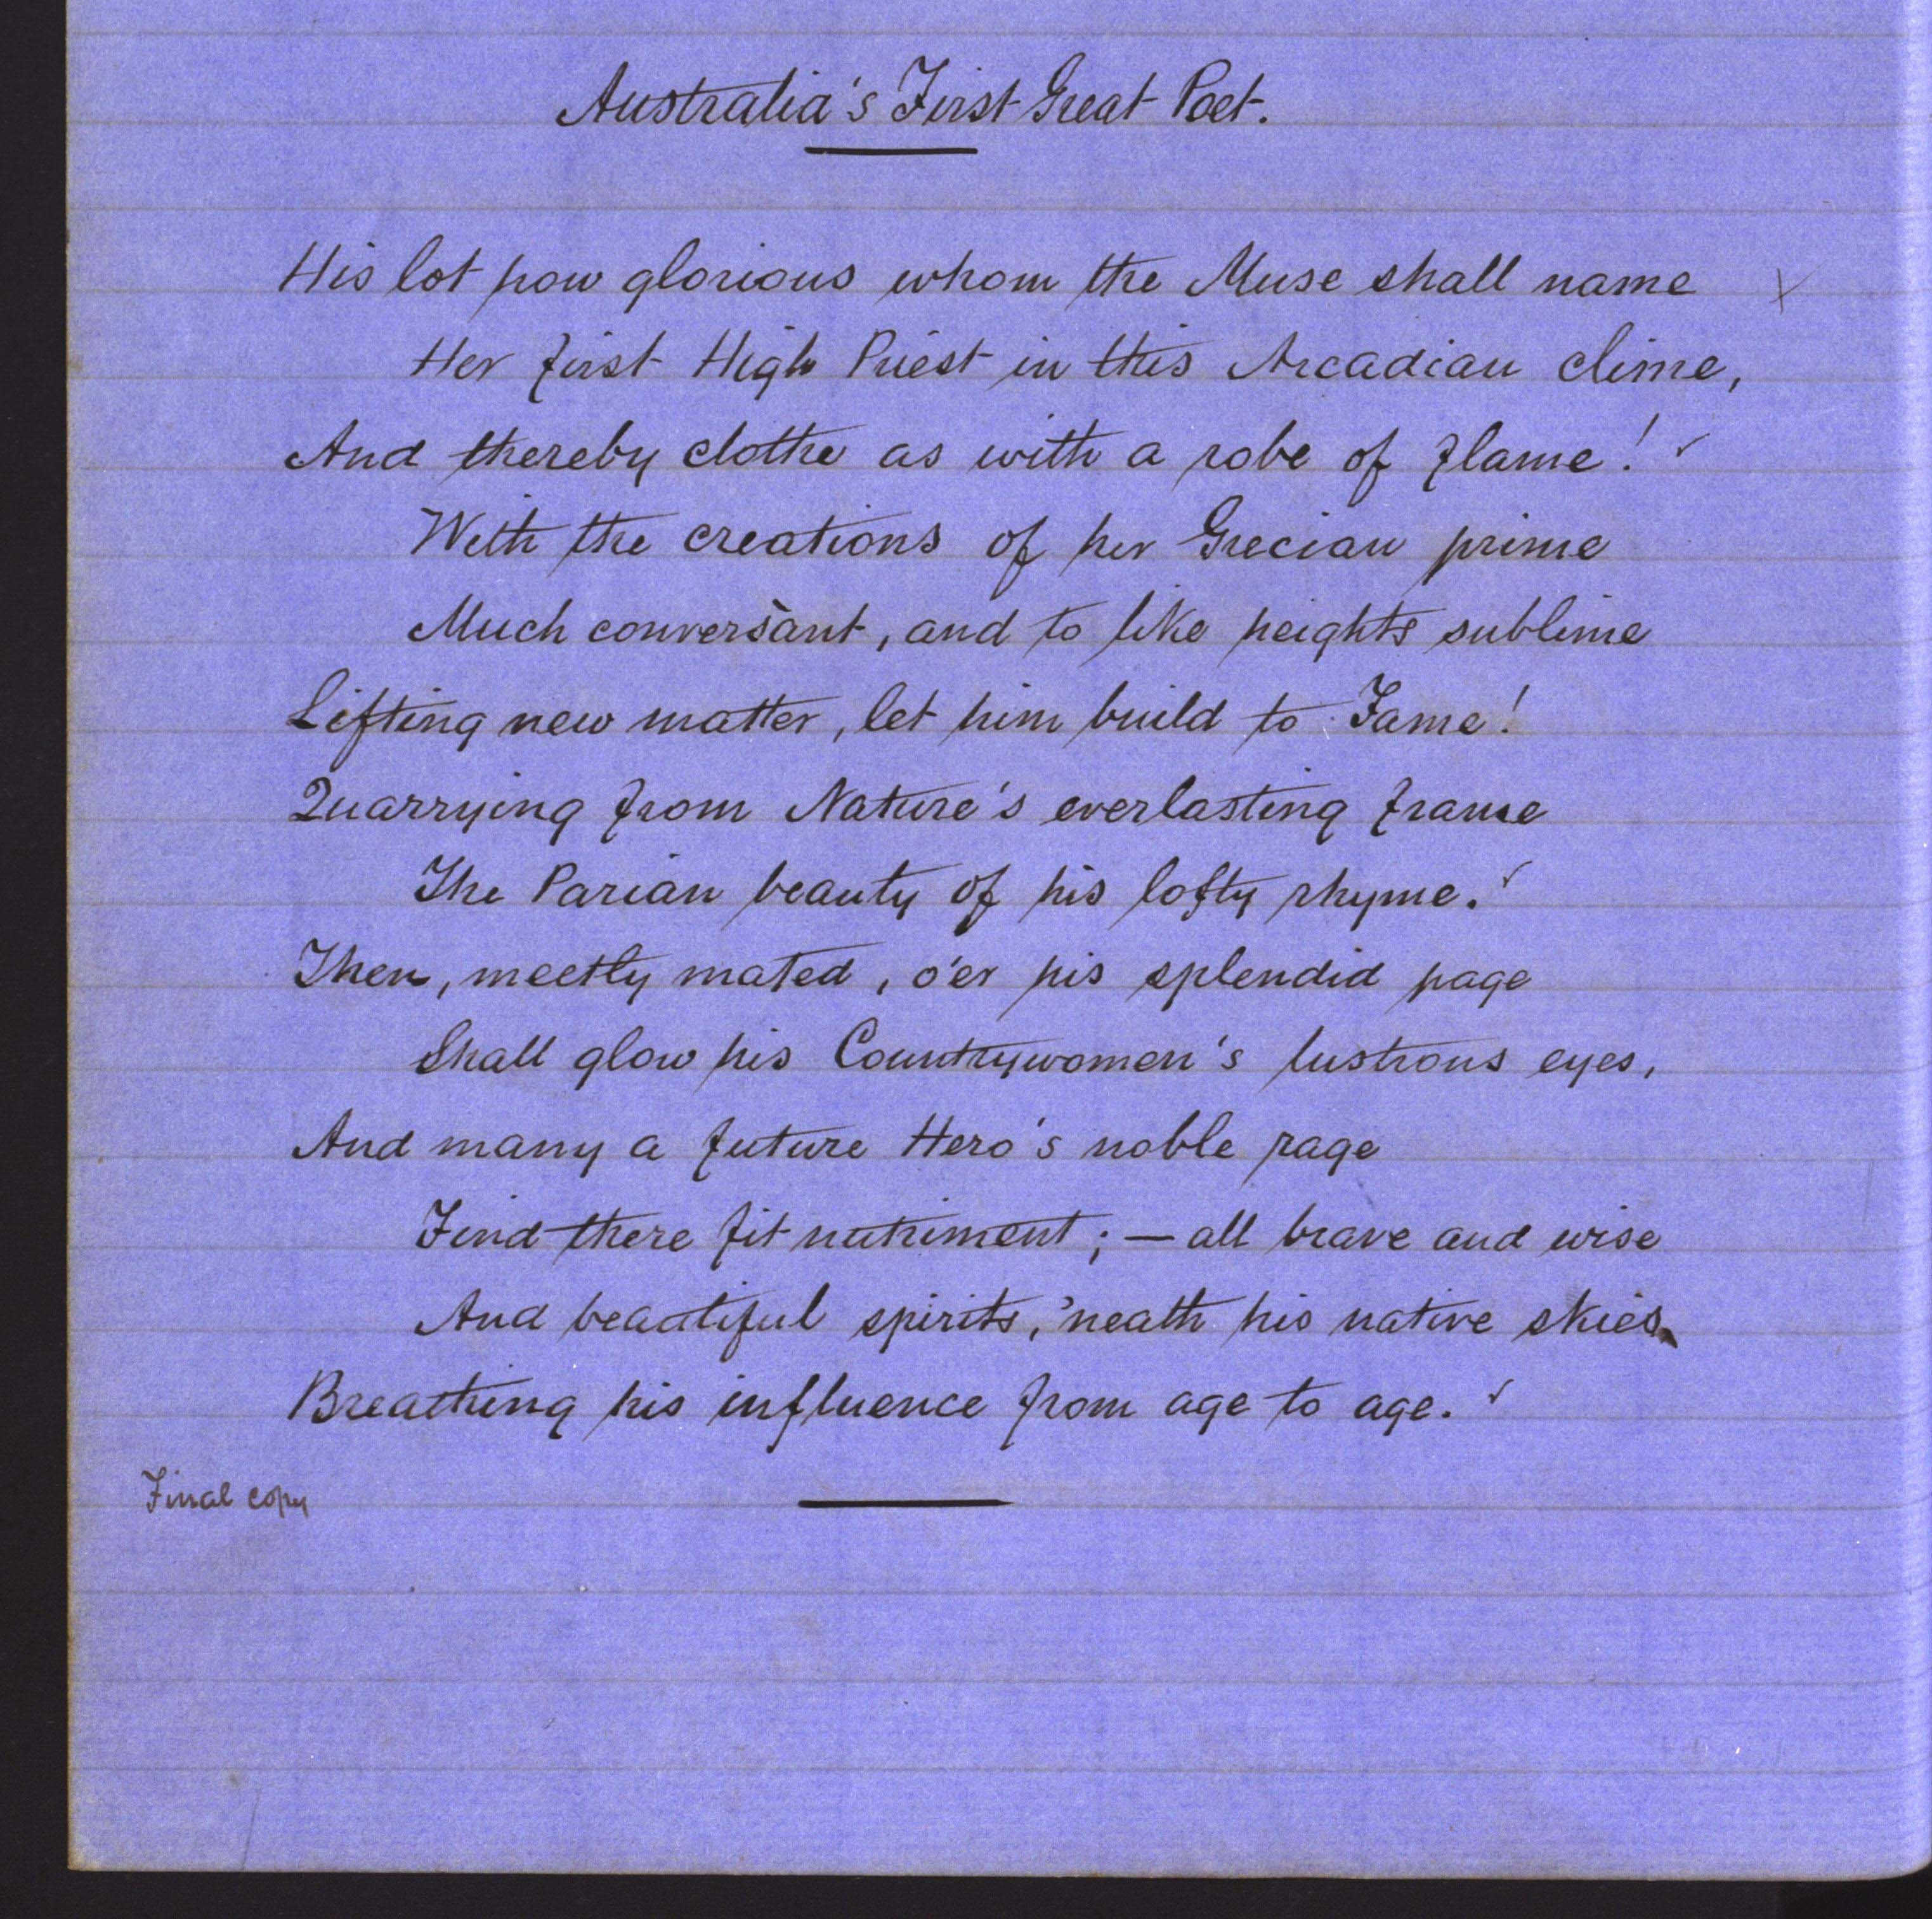 Australia's First Great Poet.
His lot how glorious whom the Muse shall name
Her first High Priest in this Arcadian clime,
And thereby clothe as with a robe of flame!
With the creations of her Grecian prime
Much conversant, and to like heights sublime
Lifting new matter, let him build to Fame!
Quarrying from Nature's everlasting frame
The Parian beauty of his lofty rhyme.
Then, meetly mated, o'er his splendid page
Shall glow his Countrywomen's lustrous eyes,
And many a future Hero's noble rage
Find there fit nutriment; — all brave and wise
And beautiful spirits, 'neath his native skies
Breathing his influence from age to age.
Final copy